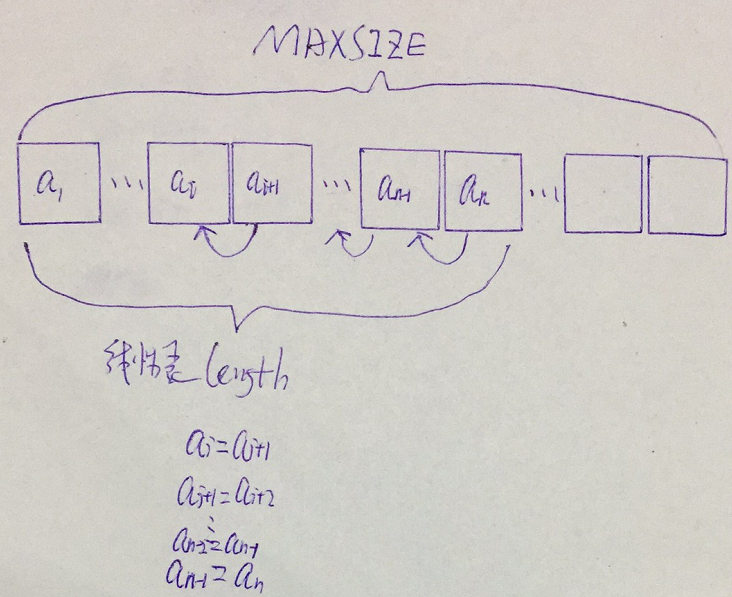 MAXSIZE
a₁ ... aᵢ aᵢ₊₁ ... aₙ₋₁ aₙ ...
线性表length
aᵢ=aᵢ₊₁
aᵢ₊₁=aᵢ₊₂
⋮
aₙ₋₂=aₙ₋₁
aₙ₋₁=aₙ